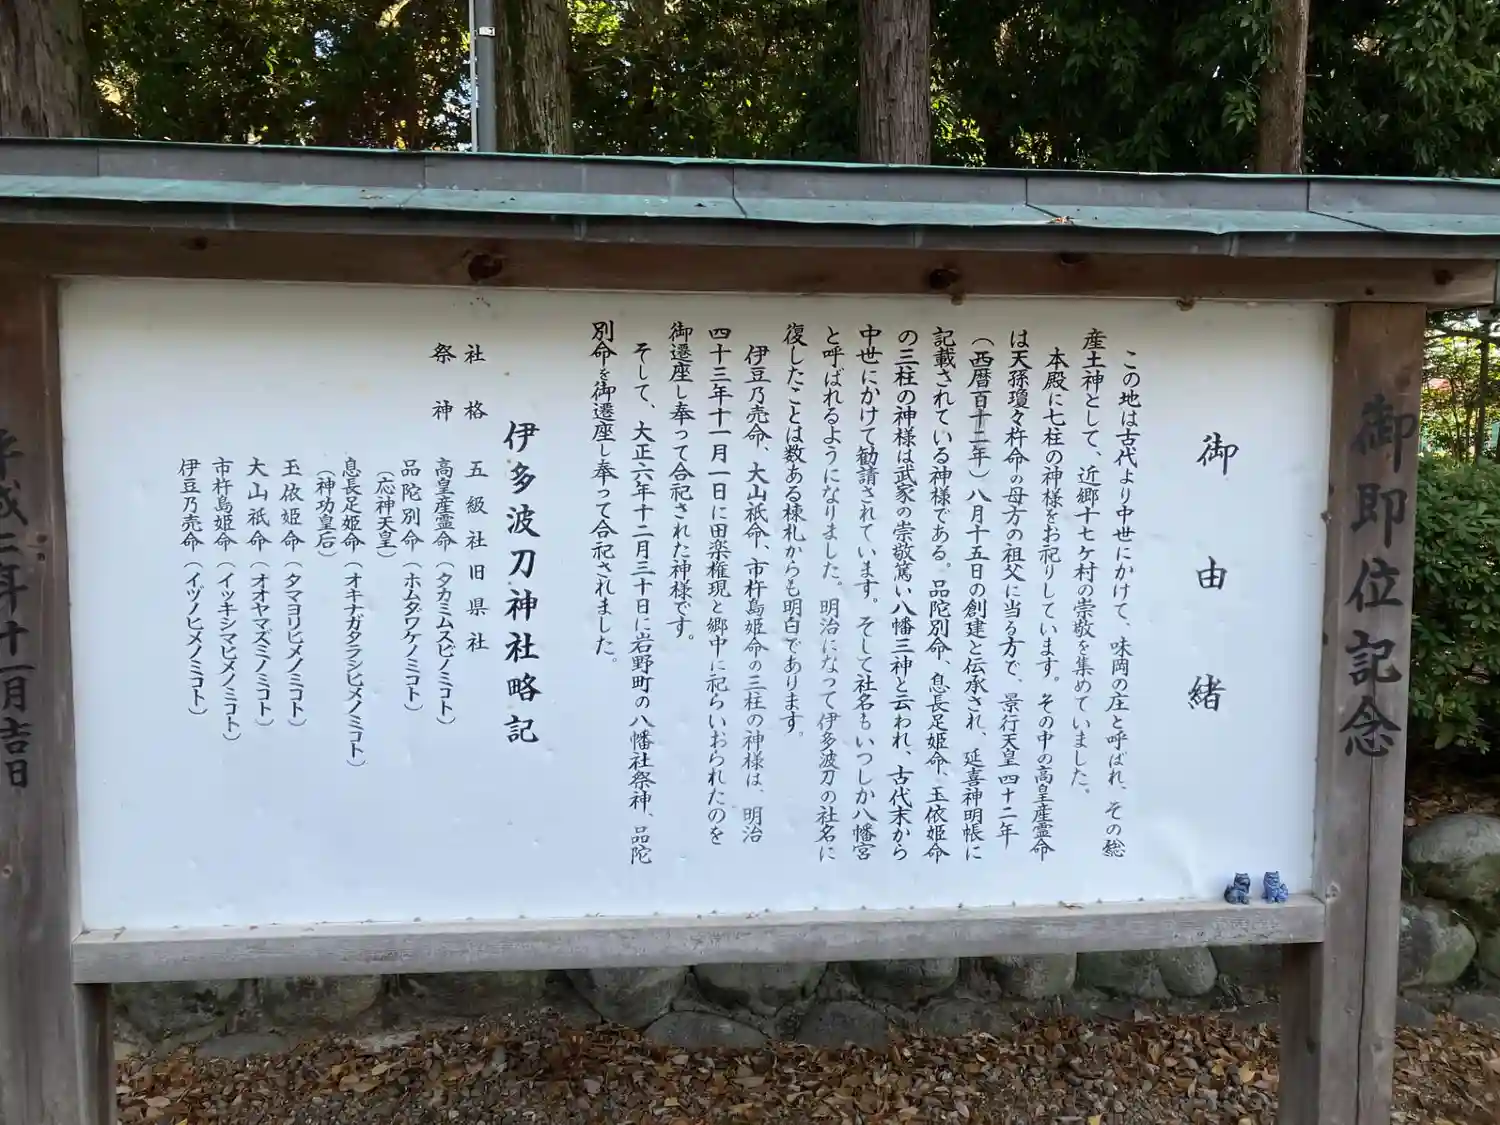 御即位記念
御由緒
この地は古代より中世にかけて、味岡の庄と呼ばれ、その総
産土神として、近郷十七ケ村の崇敬を集めていました。
本殿に七柱の神様をお祀りしています。その中の高皇産霊命
は天孫瓊々杵命の母方の祖父に当る方で、景行天皇四十二年
(西暦百十二年)八月十五日の創建と伝承され、延喜神明帳に
記載されている神様である。品陀別命、息長足姫命、玉依姫命
の三柱の神様は武家の崇敬篤い八幡三神と云われ、古代末から
中世にかけて勧請されています。そして社名もいつしか八幡宮
と呼ばれるようになりました。明治になって伊多波刀の社名に
復したことは数ある棟札からも明白であります。
伊豆乃売命、大山祇命、市杵島姫命の三柱の神様は、明治
四十三年十一月一日に田楽権現と郷中に祀らいおられたのを
御遷座し奉って合祀された神様です。
そして、大正六年十二月三十日に岩野町の八幡社祭神、品陀
別命を御遷座し奉って合祀されました。
伊多波刀神社略記
社格 五級社旧県社
祭神 高皇産霊命(タカミムスビノミコト)
品陀別命(ホムダワケノミコト)
(応神天皇)
息長足姫命(オキナガタラシヒメノミコト)
(神功皇后)
玉依姫命(タマヨリヒメノミコト)
大山祇命(オオヤマズミノミコト)
市杵島姫命(イッキシマヒメノミコト)
伊豆乃売命(イヅノヒメノミコト)
平成二年十一月吉日